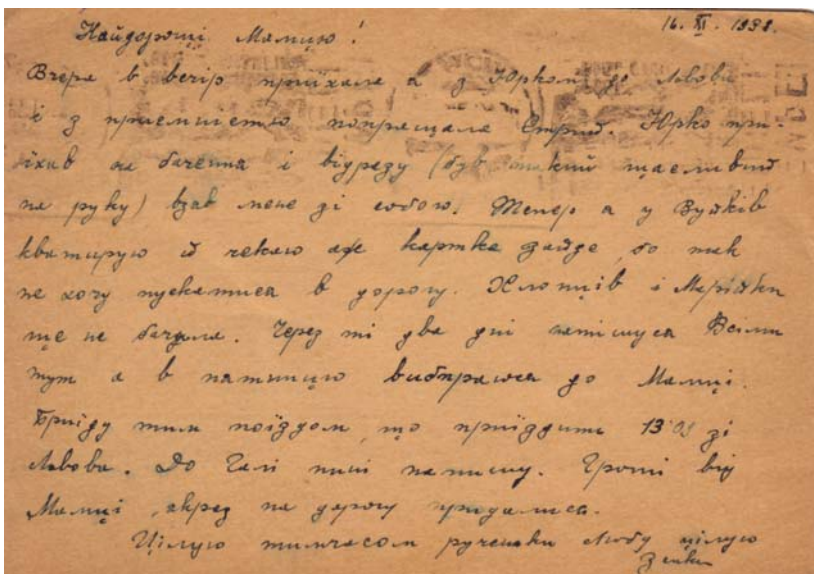 16. XI. 1938.
Найдорощі Мамцю!
Вчера в вечір приїхала я з Юрком до Львова
і з приємністю попрещала Стрий. Юрко при-
їхав на бачення і відразу (був такий щасливий
на руку) взяв мене зі собою. Тепер я у Вуйків
кватирую й чекаю аж картка зайде, бо так
не хочу пускатися в дорогу. Хлопців і Марійки
ще не бачила. Через ті два дні натішуся Всіми
тут а в пятницю вибираюся до Мамці.
Приїду тим поїздом, що приїздить 13'03 зі
Львова. До Галі нині напишу. Гроші від
Мамці якраз на дорогу придалися.
Цілую тимчасом рученьки Любу цілую
Зенка